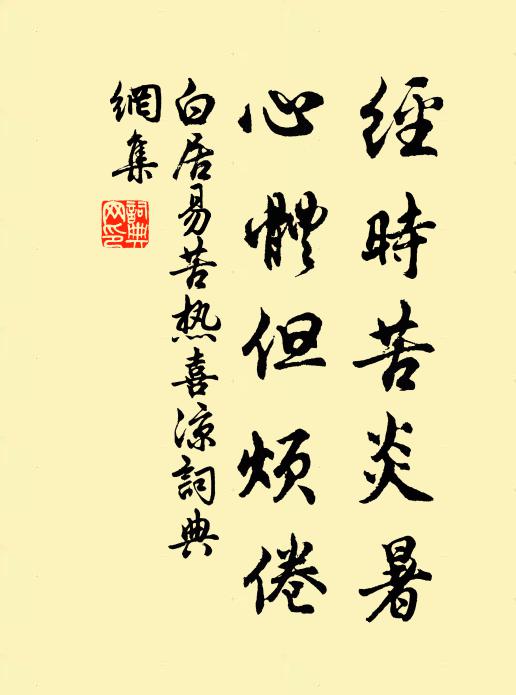 經時苦炎暑
心體但煩倦
白居易苦热喜凉詞典
網集
詞典
网印